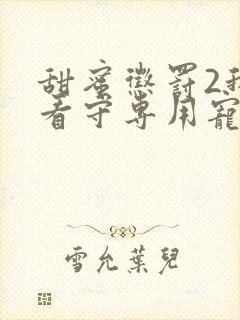 甜蜜懲罰2我
看守専用寵
雪允葉兒